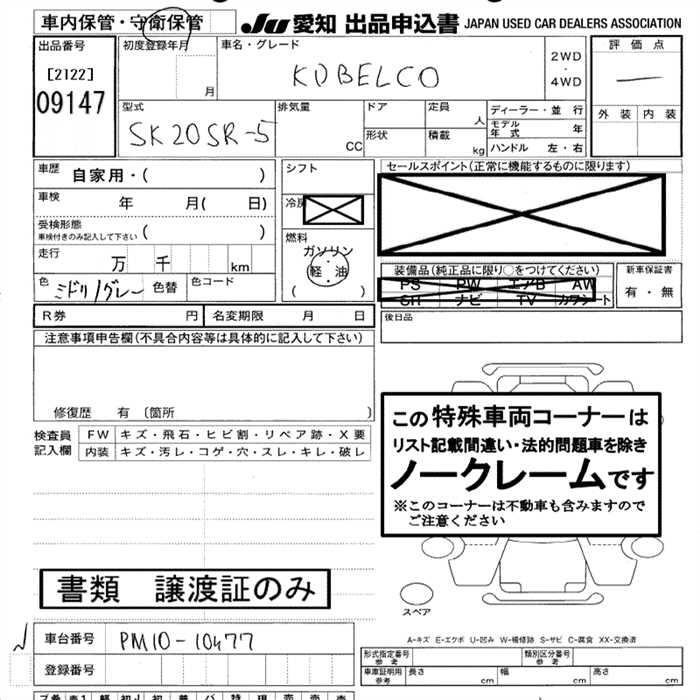 車内保管・守衛保管
JU 愛知 出品申込書 JAPAN USED CAR DEALERS ASSOCIATION
出品番号
[2122]
09147
初度登録年月
月
車名・グレード
KOBELCO
2WD
・
4WD
評価点
―
外装 内装
型式
SK20SR-5
排気量
CC
ドア
形状
定員
人
積載
kg
ディーラー・並 行
モデル年式 年
ハンドル 左・右
車歴 自家用・( )
車検 年 月( 日)
受検形態
車検付きのみ記入して下さい ( )
走行 万 千 km
色 ミドリ/グレー 色替 色コード
シフト
冷房
燃料
ガソリン
軽・油
( )
セールスポイント(正常に機能するものに限ります)
装備品(純正品に限り○をつけてください)
PS PW エアB AW
SH ナビ TV カワシート
新車保証書
有・無
R券 円 名変期限 月 日
後日品
注意事項申告欄(不具合内容等は具体的に記入して下さい)
修復歴 有 〔箇所 〕
検査員記入欄
FW キズ・飛石・ヒビ割・リペア跡・X要
内装 キズ・汚レ・コゲ・穴・スレ・キレ・破レ
この特殊車両コーナーは
リスト記載間違い・法的問題車を除き
ノークレームです
※このコーナーは不動車も含みますので
ご注意ください
書類 譲渡証のみ
スペア
A-キズ E-エクボ U-凹み W-補修跡 S-サビ C-腐食 XX-交換済
車台番号 PM10-10477
登録番号
形式指定番号 参考
類別区分番号 参考
車庫証明用 参考 長さ cm 幅 cm 高さ cm